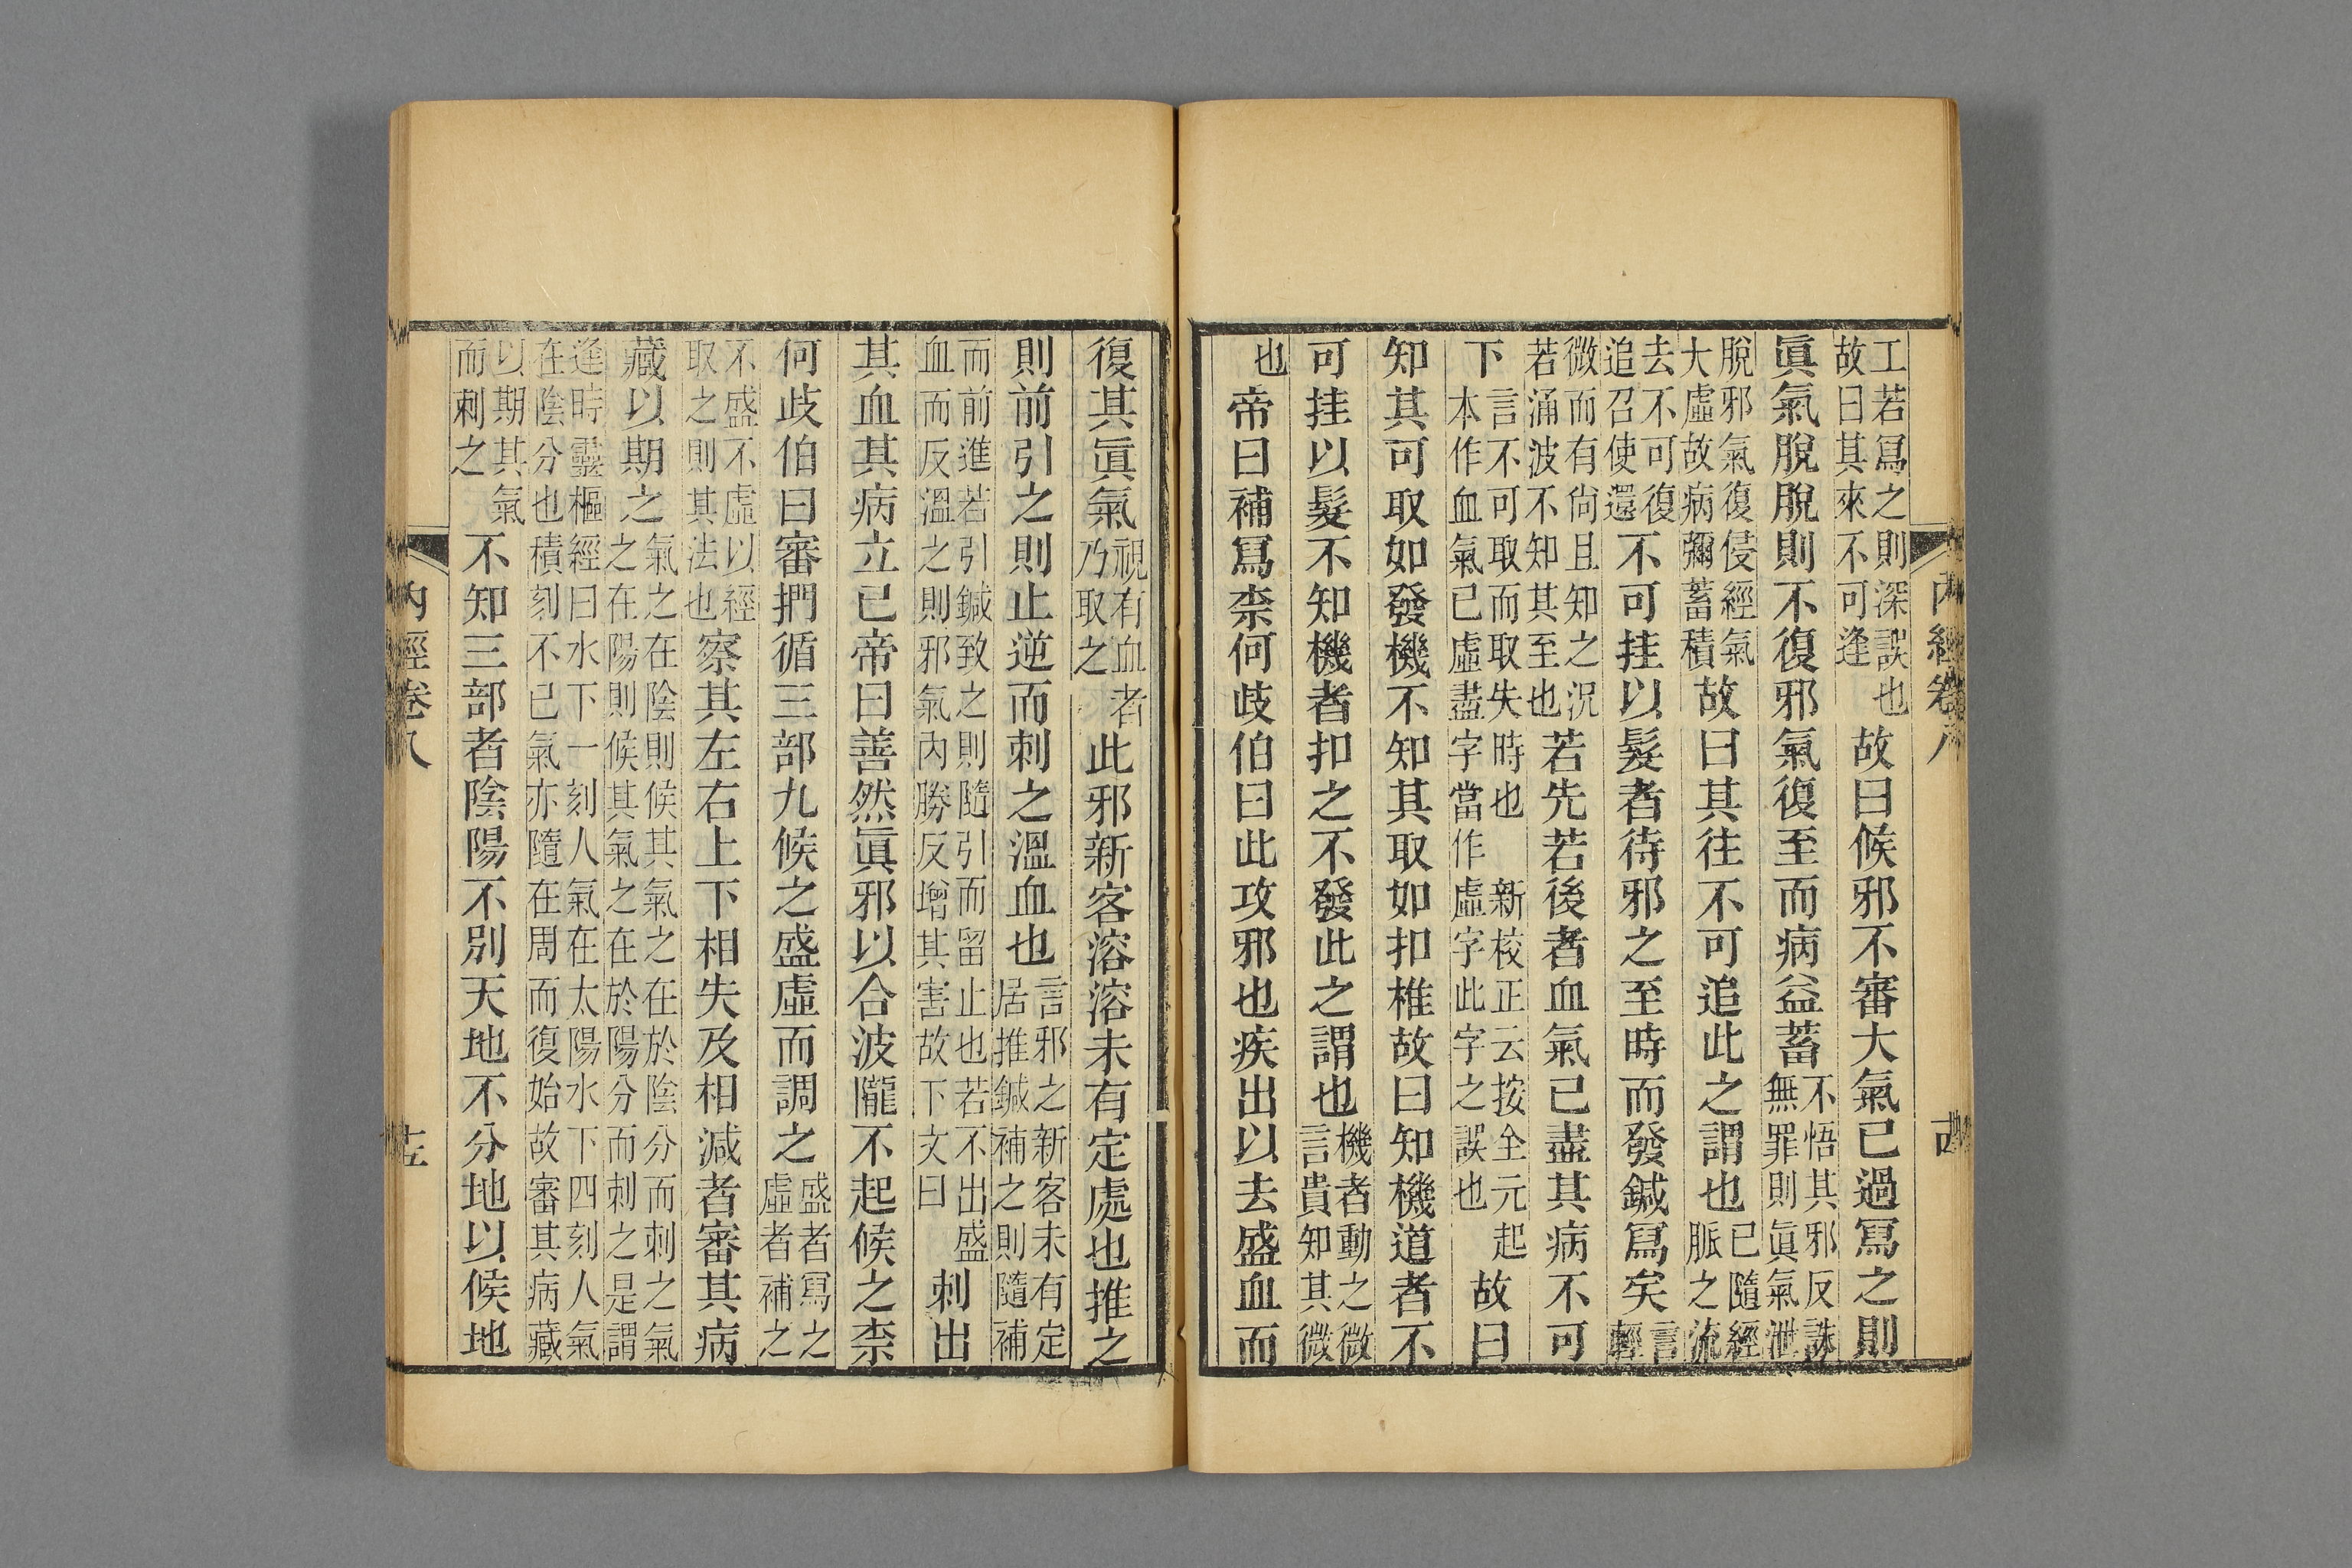 內經卷八
工若寫之則深誤也故曰其來不可逢故曰候邪不審大氣已過寫之則
眞氣脫脫則不復邪氣復至而病益蓄不悟其邪反誅無罪則眞氣泄
脫邪氣復侵經氣大虛故病彌蓄積故曰其往不可追此之謂也已隨經脈之流
去不可復追召使還不可挂以髮者待邪之至時而發鍼寫矣言輕
微而有尚且知之況若涌波不知其至也若先若後者血氣已盡其病不可
下言不可取而取失時也新校正云按全元起本作血氣已虛盡字當作虛字此字之誤也故曰
知其可取如發機不知其取如扣椎故曰知機道者不
可挂以髮不知機者扣之不發此之謂也機者動之微言貴知其微
也帝曰補寫柰何歧伯曰此攻邪也疾出以去盛血而
復其眞氣視有血者乃取之此邪新客溶溶未有定處也推之
則前引之則止逆而刺之溫血也言邪之新客未有定居推鍼補之則隨補
而前進若引鍼致之則隨引而留止也若不出盛血而反溫之則邪氣內勝反增其害故下文曰刺出
其血其病立已帝曰善然眞邪以合波隴不起候之柰
何歧伯曰審捫循三部九候之盛虛而調之盛者寫之虛者補之
不盛不虛以經取之則其法也察其左右上下相失及相減者審其病
藏以期之氣之在陰則候其氣之在於陰分而刺之氣之在陽則候其氣之在於陽分而刺之是謂
逢時靈樞經曰水下一刻人氣在太陽水下四刻人氣在陰分也積刻不已氣亦隨在周而復始故審其病藏
以期其氣而刺之不知三部者陰陽不別天地不分地以候地
內經卷八
十五